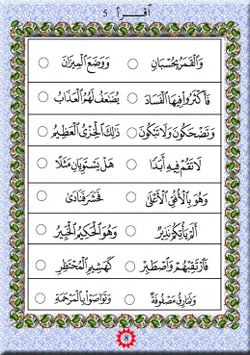 أقرأ 5
وَالْقَمَرُ بِحُسْبَانٍ ○ وَوَضَعَ الْمِيزَانَ ○
فَأَكْثَرُوا فِيهَا الْفَسَادَ ○ يُضَعَفُ لَهُمُ الْعَذَابُ ○
وَتَضْحَكُونَ وَلَا تَبْكُونَ ○ ذَٰلِكَ الْخِزْىُ الْعَظِيمُ ○
لَا تَقُمْ فِيهِ أَبَدًا ○ هَلْ يَسْتَوِيَانِ مَثَلًا ○
وَهُوَ بِالْأُفُقِ الْأَعْلَىٰ ○ فَحَشَرَ فَنَادَىٰ ○
أَلَمْ يَأْتِكُمْ نَذِيرٌ ○ وَهُوَ الْحَكِيمُ الْخَبِيرُ ○
فَارْتَقِبْهُمْ وَاصْطَبِرْ ○ كَهَشِيمِ الْمُحْتَظِرِ ○
وَنَمَارِقُ مَصْفُوفَةٌ ○ وَتَوَاصَوْا بِالْمَرْحَمَةِ ○
8